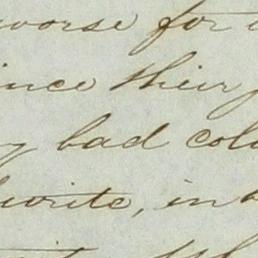 worse for
ince their
bad col
write, in